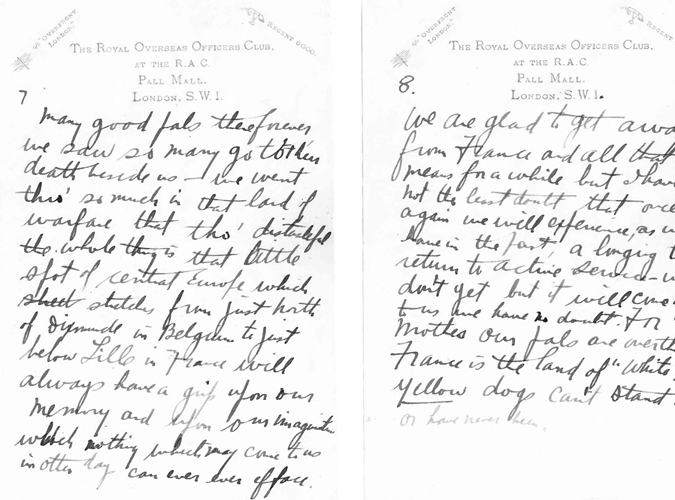 "OVERSFONT
LONDON."
REGENT 5000.
THE ROYAL OVERSEAS OFFICERS CLUB,
AT THE R.A.C.
PALL MALL.
LONDON, S.W. 1.
7
Many good pals there forever
we saw so many go to their
death beside us — we went
thro' so much in that land of
warfare that tho' distasteful
the whole thing is that little
spot of central Europe which
stretches from just north
of Dixmude in Belgium to just
below Lille in France will
always have a grip upon our
Memory and upon our imagination
which nothing which may come to us
in other day can ever ever efface.
"OVERSFONT
LONDON."
REGENT
THE ROYAL OVERSEAS OFFICERS CLUB,
AT THE R.A.C.
PALL MALL.
LONDON, S.W. 1.
8.
We are glad to get awa
from France and all that
means for a while but I have
not the least doubt that once
again we will experience, as w
have in the past, a longing t
return to active service — w
don't get but it will come
to us we have no doubt. For
Mother our pals are over th
France is the land of "White
Yellow dogs can't stand
or have never been.